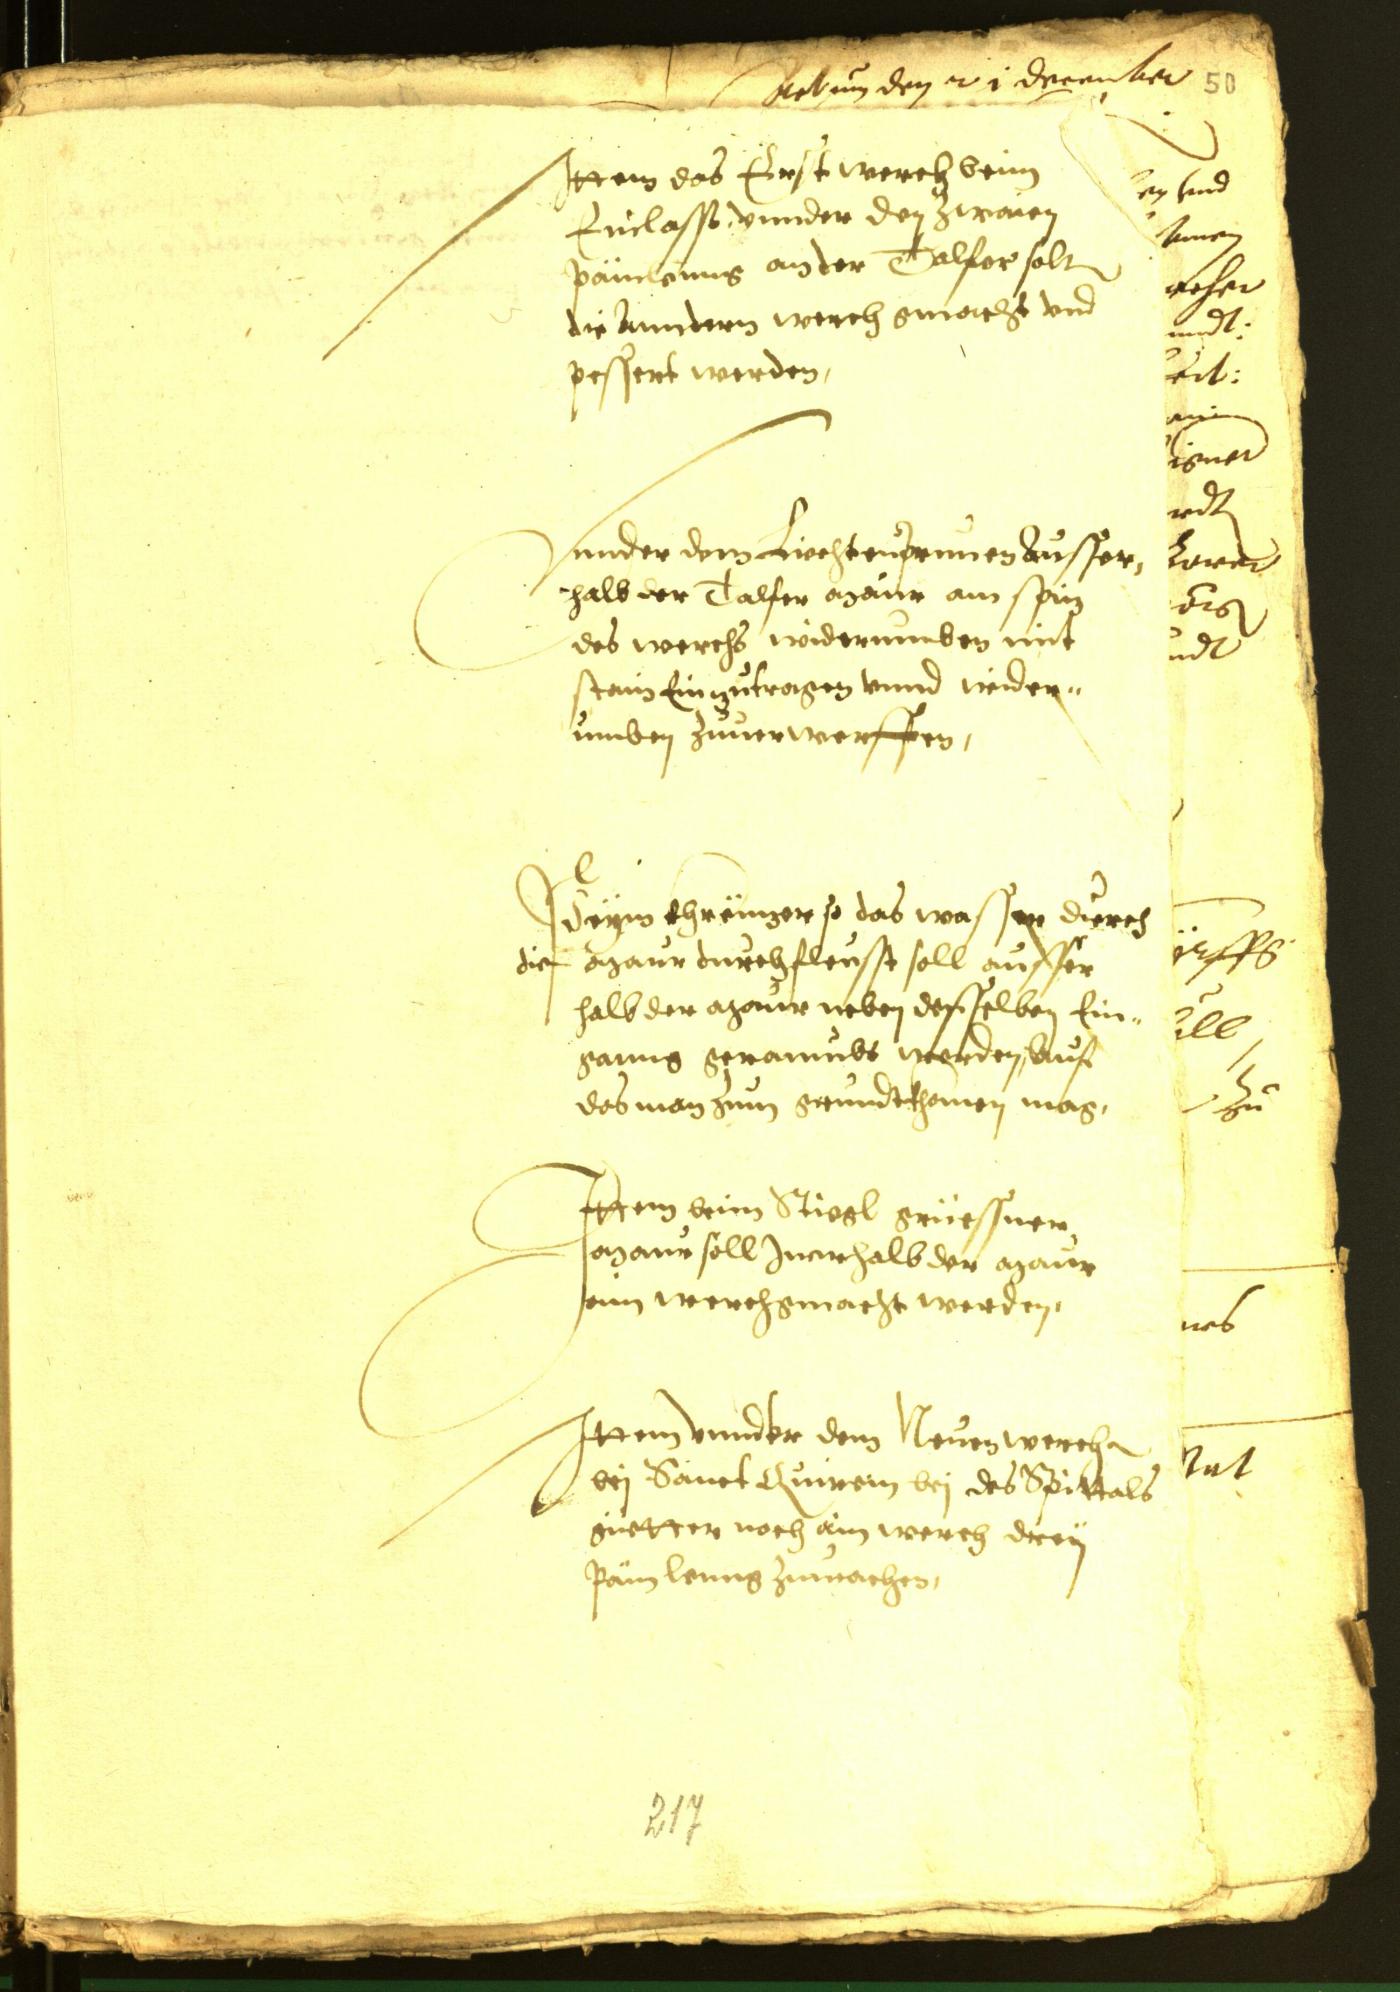 Actum den 21 december 50
Ittem das Erst werch beim
Einlasst, vnnder den zwaien
pämbenng an der Talfer solt
die anndern werch gmacht vnd
pessert werden,
Vnnder dem Liechtenprunen ausser,
halb der Talfer maur am spiz
des werchs widerumben mit
stain Einzutragen vnnd wider„
umben zuuerwerffen,
Beym so das wasser durch
die maur durchfleusst soll ausser
halb der maur neben desselben Ein„
ganng geraumbt werden, auf
das man zum grundt khomen mag,
Ittem beim Stiegl griessner
maur soll Innerhalb der maur
ein werch gmacht werden,
Ittem vnnder dem Neuen werch
bej Sanct Quirein bej des Spittals
guetter noch ain werch dreÿ
pämleng zumachen,
217